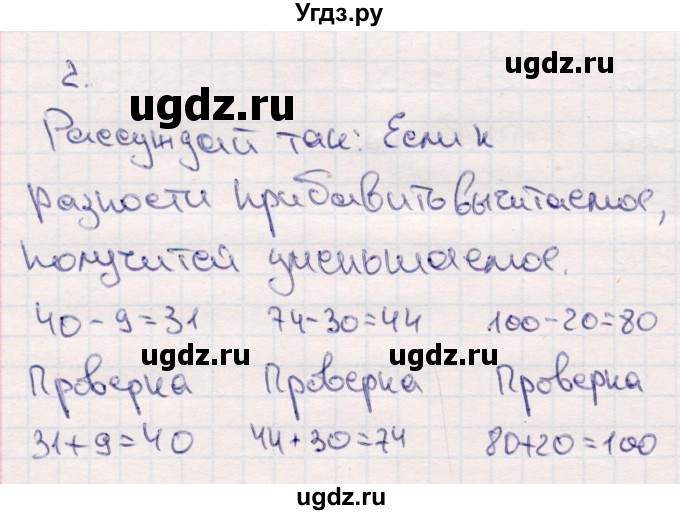 Угдз.ру
2.
ugdz.ru
ugdz.ru
Рассуждай так: Если к
разности прибавить вычитаемое,
получитей уменьшаемое.
ugdz.ru
40-9=31 74-30=44 100-20=80
ugdz.ru
ugdz.ru
Проверка Проверка Проверка
31+9=40 44+30=74 80+20=100
ugdz.ru
ugdz.ru